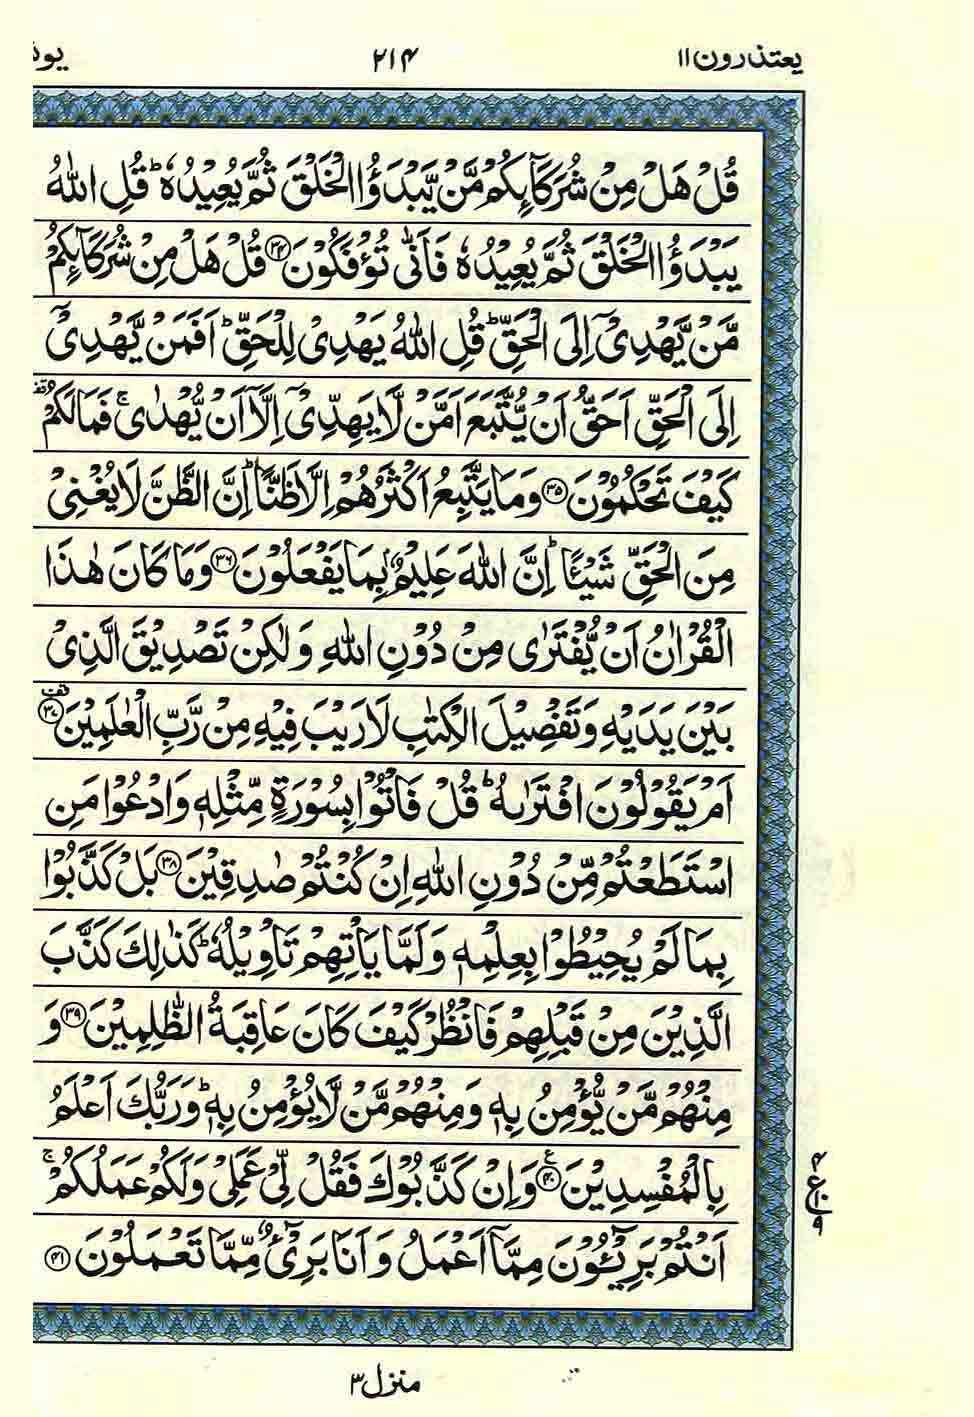 یعتذرون ۱۱ ۲۱۴
قُلْ هَلْ مِنْ شُرَكَآىِٕكُمْ مَّنْ یَّبْدَؤُا الْخَلْقَ ثُمَّ یُعِیْدُهٗ ؕ قُلِ اللّٰهُ
یَبْدَؤُا الْخَلْقَ ثُمَّ یُعِیْدُهٗ فَاَنّٰی تُؤْفَكُوْنَ ۳۴ قُلْ هَلْ مِنْ شُرَكَآىِٕكُمْ
مَّنْ یَّهْدِیْۤ اِلَی الْحَقِّ ؕ قُلِ اللّٰهُ یَهْدِیْ لِلْحَقِّ ؕ اَفَمَنْ یَّهْدِیْۤ
اِلَی الْحَقِّ اَحَقُّ اَنْ یُّتَّبَعَ اَمَّنْ لَّا یَهِدِّیْۤ اِلَّاۤ اَنْ یُّهْدٰی ۚ فَمَا لَكُمْ
كَیْفَ تَحْكُمُوْنَ ۳۵ وَمَا یَتَّبِعُ اَكْثَرُهُمْ اِلَّا ظَنًّا ؕ اِنَّ الظَّنَّ لَا یُغْنِیْ
مِنَ الْحَقِّ شَیْـًٔا ؕ اِنَّ اللّٰهَ عَلِیْمٌۢ بِمَا یَفْعَلُوْنَ ۳۶ وَمَا كَانَ هٰذَا
الْقُرْاٰنُ اَنْ یُّفْتَرٰی مِنْ دُوْنِ اللّٰهِ وَلٰكِنْ تَصْدِیْقَ الَّذِیْ
بَیْنَ یَدَیْهِ وَتَفْصِیْلَ الْكِتٰبِ لَا رَیْبَ فِیْهِ مِنْ رَّبِّ الْعٰلَمِیْنَ ۳۷
اَمْ یَقُوْلُوْنَ افْتَرٰىهُ ؕ قُلْ فَاْتُوْا بِسُوْرَةٍ مِّثْلِهٖ وَادْعُوْا مَنِ
اسْتَطَعْتُمْ مِّنْ دُوْنِ اللّٰهِ اِنْ كُنْتُمْ صٰدِقِیْنَ ۳۸ بَلْ كَذَّبُوْا
بِمَا لَمْ یُحِیْطُوْا بِعِلْمِهٖ وَلَمَّا یَاْتِهِمْ تَاْوِیْلُهٗ ؕ كَذٰلِكَ كَذَّبَ
الَّذِیْنَ مِنْ قَبْلِهِمْ فَانْظُرْ كَیْفَ كَانَ عَاقِبَةُ الظّٰلِمِیْنَ ۳۹ وَ
مِنْهُمْ مَّنْ یُّؤْمِنُ بِهٖ وَمِنْهُمْ مَّنْ لَّا یُؤْمِنُ بِهٖ ؕ وَرَبُّكَ اَعْلَمُ
بِالْمُفْسِدِیْنَ ۴۰ وَاِنْ كَذَّبُوْكَ فَقُلْ لِّیْ عَمَلِیْ وَلَكُمْ عَمَلُكُمْ ۚ
اَنْتُمْ بَرِیْٓـُٔوْنَ مِمَّاۤ اَعْمَلُ وَاَنَا بَرِیْٓءٌ مِّمَّا تَعْمَلُوْنَ ۴۱
۴ ع ۹
منزل ۳